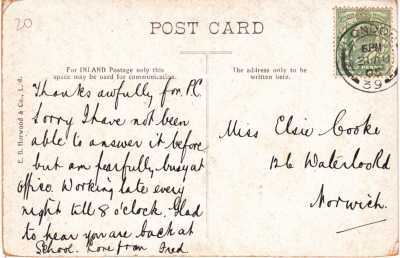 20
POST CARD
For INLAND Postage only this
space may be used for communication.
The address only to be
written here.
E. B. Horwood & Co., Ld.
Thanks awfully for P.C.
Sorry I have not been
able to answer it before
but am fearfully busy at
office. Working late every
night till 8 o'clock. Glad
to hear you are back at
School. Love from Fred
Miss Elsie Cooke
126 Waterloo Rd
Norwich.
LONDON
6 PM
39